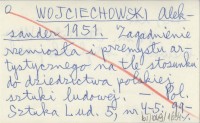 WOJCIECHOWSKI Alek-
sander 1951. Zagadnienie
rzemiosła i przemysłu ar-
tystycznego na tle stosunku
do dziedzictwa polskiej
sztuki ludowej. — Pol.
Sztuka Lud. 5, nr 4-5: 99-